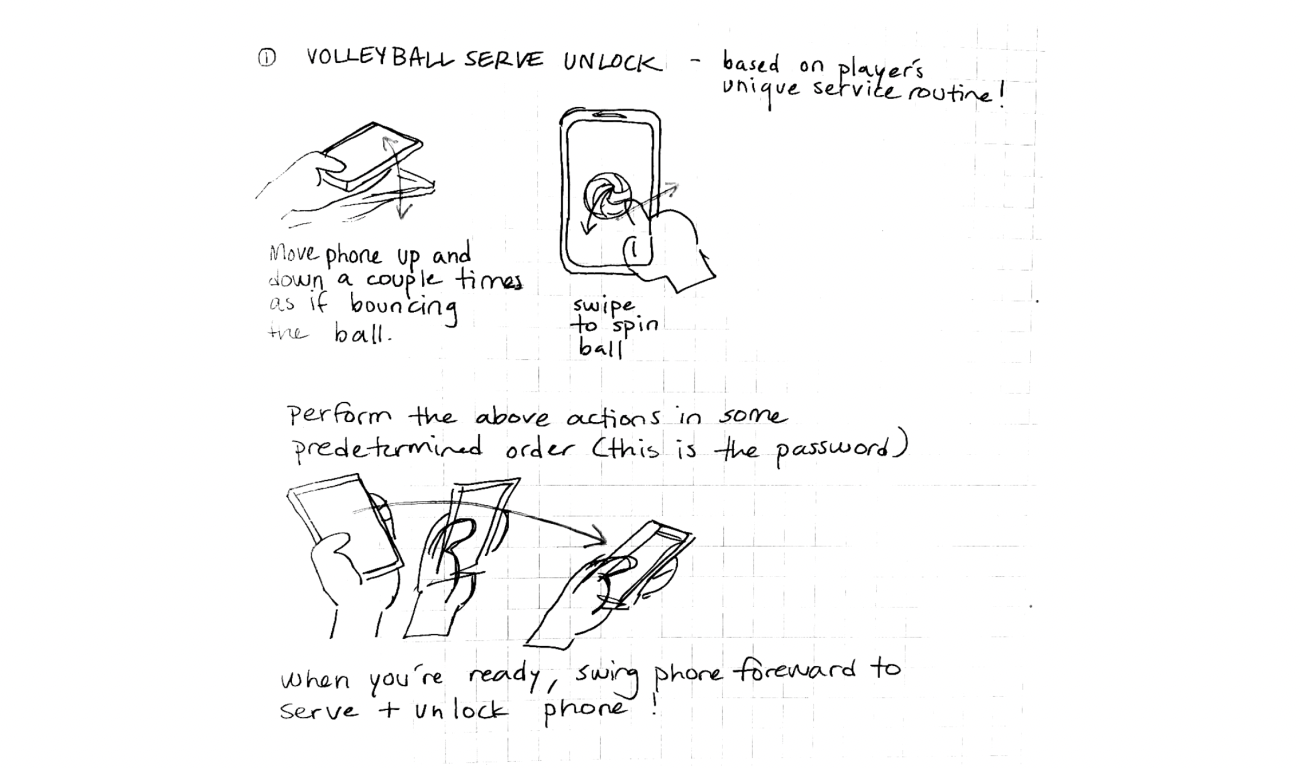 ① VOLLEYBALL SERVE UNLOCK - based on player's
unique service routine!
Move phone up and
down a couple times
as if bouncing
the ball.
swipe
to spin
ball
Perform the above actions in some
predetermined order (this is the password)
when you're ready, swing phone foreward to
serve + unlock phone !